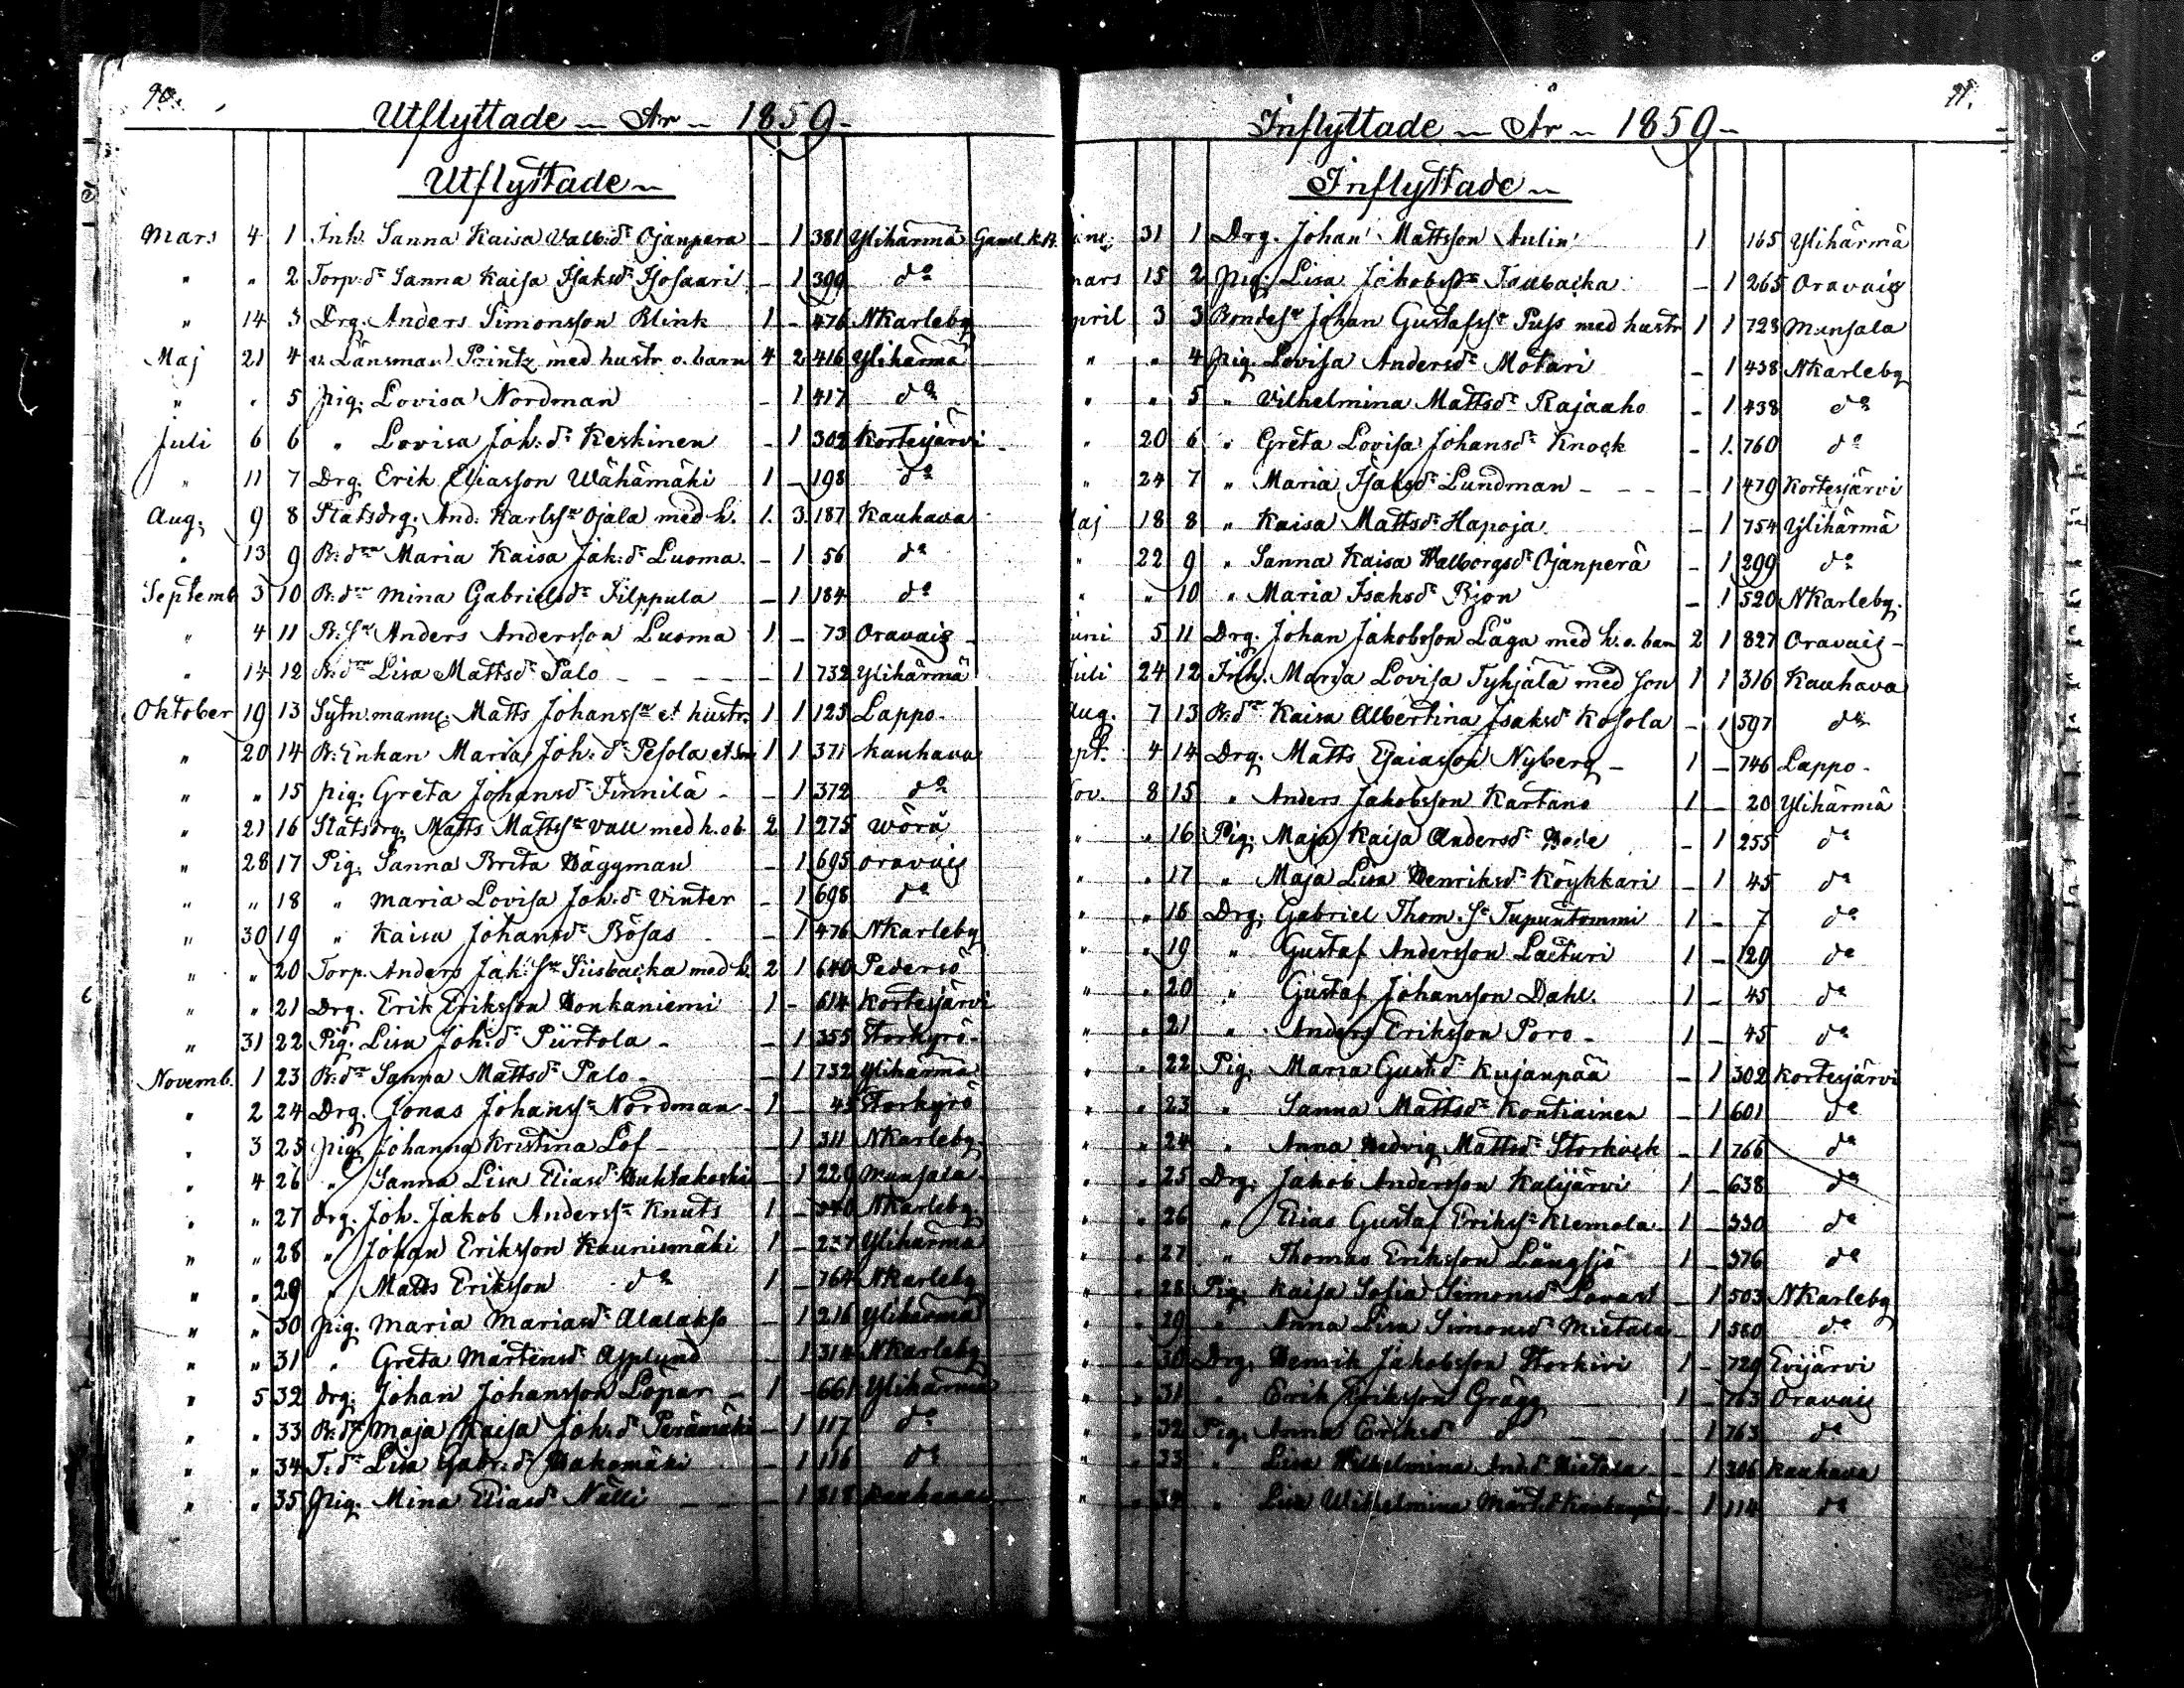 90.
Utflyttade – År – 1859 –
Utflyttade –
Mars 4 1 Inh. Sanna Kaisa Valb:dr Ojanpera – 1 381 Ylihärmä Gamel k.b.
" " 2 Torp:dr Sanna Kaisa Isaksdr Isosaari – 1 399 do
" 14 3 Drg. Anders Simonsson Blink 1 – 476 NKarleby
Maj 21 4 v. Länsman Printz med hustr. o. barn 4 2 416 Ylihärmä
" " 5 pig. Lovisa Nordman – 1 417 do
Juli 6 6 " Lovisa Joh:dr Keskinen – 1 302 Kortesjärvi
" 11 7 Drg. Erik Eliasson Wähämäki 1 – 198 do
Aug. 9 8 Statsdrg. And. Karlssn Ojala med h. 1 3 187 Kauhava
" 13 9 B:dr Maria Kaisa Jak:dr Luoma – 1 56 do
Septemb 3 10 B:dr Mina Gabrielsdr Filppula – 1 184 do
" 4 11 B:sn Anders Andersson Luoma 1 – 73 Oravais –
" 14 12 B:dr Lisa Mattsdr Palo – – – – 1 732 Ylihärmä
Oktober 19 13 Sytn.mann. Matts Johanssn et hustr. 1 1 123 Lappo –
" 20 14 B:Enkan Maria Joh:dr Pesola et son 1 1 371 Kauhava
" " 15 pig. Greta Johansdr Finnilä – – 1 372 do
" 21 16 Statsdrg. Matts Mattssn Vall med h. o b. 2 1 275 Wörå
" 28 17 Pig. Sanna Brita Häggman – 1 695 Oravais
" " 18 " Maria Lovisa Joh:dr Vinter – 1 698 do
" 30 19 " Kaisa Johansdr Bösas – 1 476 NKarleby
" " 20 Torp. Anders Jak:sn Siisbacka med h. 2 1 640 Pedersö
" " 21 Drg. Erik Eriksson Honkaniemi 1 – 614 Kortesjärvi
" 31 22 Pig. Lisa Joh:dr Piirtola – – 1 355 Storkyro –
Novemb. 1 23 B:dr Sanna Mattsdr Palo – – 1 732 Ylihärmä
" 2 24 Drg. Jonas Johanssn Nordman – 1 – 45 Storkyrö
" 3 25 pig. Johanna Kristina Löf – – 1 311 NKarleby
" 4 26 " Sanna Lisa Eliasdr Huhtakoski – 1 229 Munsala
" " 27 drg. Joh. Jakob Anderssn Knuts 1 – NKarleby
" " 28 " Johan Eriksson Kaunismäki 1 – Ylihärmä
" " 29 " Matts Eriksson do 1 – 764 NKarleby
" " 30 pig. Maria Mariasdr Alalakso – 1 216 Ylihärmä
" " 31 " Greta Mårtensdr Asplund – 1 314 NKarleby
" 5 32 drg. Johan Johansson Löpar – 1 – 661 Ylihärmä
" " 33 B:dr Maja Kaisa Joh:dr Perämäki – 1 117 do
" " 34 T:dr Lisa Gabr:dr Hakamäki – 1 116 do
" " 35 Pig. Mina Eliasdr Nälli – – – 1 818 Kauhava
91.
Inflyttade – År – 1859 –
Inflyttade –
31 1 Drg. Johan Mattsson Aulin 1 165 Ylihärmä
mars 15 2 pig. Lisa Jakobsdr Isubacka – 1 265 Oravais
pril 3 3 Bondesn Johan Gustafssn Puss med hustr 1 1 723 Munsala
" " 4 pig. Lovisa Andersdr Motari – 1 438 NKarleby
" " 5 " Vilhelmina Mattsdr Rajaaho – 1 438 do
" 20 6 " Greta Lovisa Johansdr Knock – 1 760 do
" 24 7 " Maria Isaksdr Lundman – – – – 1 479 Kortesjärvi
aj 18 8 " Kaisa Mattsdr Hapoja – 1 754 Ylihärmä
" 22 9 " Sanna Kaisa Walborgsdr Ojanperä – 1 299 do
" " 10 " Maria Isaksdr Bjon – 1 520 NKarleby.
uni 5 11 Drg. Johan Jakobsson Låga med h. o. barn 2 1 827 Oravais –
uli 24 12 Inh. Maria Lovisa Tyhjälä med son 1 1 316 Kauhava
Aug. 7 13 B:dr Kaisa Albertina Isaksdr Kosola – 1 597 do
pt. 4 14 Drg. Matts Esaiasson Nyberg – 1 – 746 Lappo –
ov. 8 15 " Anders Jakobsson Kartano 1 – 20 Ylihärmä
" " 16 Pig. Maja Kaisa Andersdr – 1 255 do
" " 17 " Maja Lisa Henriksdr Köykkäri – 1 45 do
" " 18 Drg. Gabriel Thom.sn Tupuntommi 1 – 7 do
" " 19 " Gustaf Andersson Lacturi 1 – 129 do
" " 20 " Gustaf Johansson Dahl. 1 – 45 do
" " 21 " Anders Eriksson Poro – 1 – 45 do
" " 22 Pig. Maria Gust:dr Kujanpää – 1 302 Kortesjärvi
" " 23 " Sanna Mattsdr Kontiainen – 1 601 do
" " 24 " Anna Hedvig Mattsdr Storkock – 1 766 do
" " 25 Drg. Jakob Andersson Kalijärvi 1 – 638 do
" " 26 " Elias Gustaf Erikssn Klemola 1 – 330 do
" " 27 " Thomas Eriksson Långsjö 1 – 576 do
" " 28 Pig. Kaisa Sofia Simonsdr Lovast – 1 503 NKarleby
" " 29 " Anna Lisa Simonsdr Mietala – 1 580 do
" " 30 Drg. Henrik Jakobsson Storkivi 1 – 729 Evijärvi
" " 31 " Erik Eriksson Grägg 1 – 763 Oravais
" " 32 Pig. Anna Eriksdr do – – – 1 763 do
" " 33 " Lisa Wilhelmina And:dr Hietala – 1 306 Kauhava
" " 34 " Lisa Wilhelmina Mårt:dr – 1 114 do